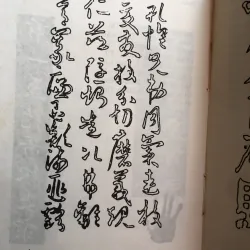 孔懷兄弟同氣連枝
交友投分切磨箴規
仁慈隱惻造次弗離
節義廉退顛沛匪虧